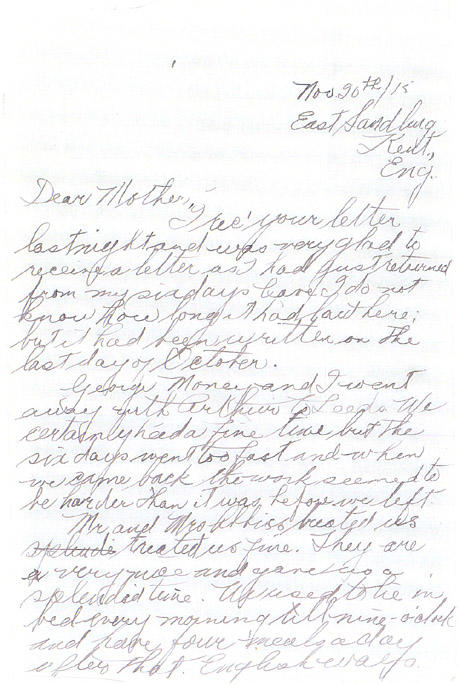 Nov 20th/15
East Sandling
Kent,
Eng.
Dear Mother,
I rec' your letter
last night and was very glad to
receive a letter as I had just returned
from my six days leave. I do not
know how long it had laid here;
but it had been written on the
last day of October.
George Money and I went
away with Arthur to Leeds. We
certainly had a fine time but the
six days went too fast and when
we came back the work seemed to
be harder than it was before we left.
Mr. and Mrs. treated us
treated us fine. They are
very nice and gave us a
splended time. We used to lie in
bed every morning till nine-o'clock
and have four meals a day
after that. English ways.